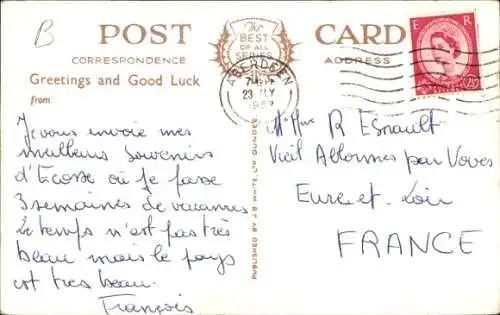 B
POST CARD
The BEST OF ALL SERIES
CORRESPONDENCE
ADDRESS
Greetings and Good Luck
from
Je vous envoie mes
meilleurs souvenirs
d'Ecosse où je passe
3 semaines de vacances
Le temps n'est pas très
beau mais le pays
est très beau.
François
PUBLISHED BY J.B. WHITE, LTD DUNDEE
ABERDEEN
23 MY
1957
E R
M. Mme R Esnault
Vieil Allonnes par Voves
Eure-et-Loir
FRANCE